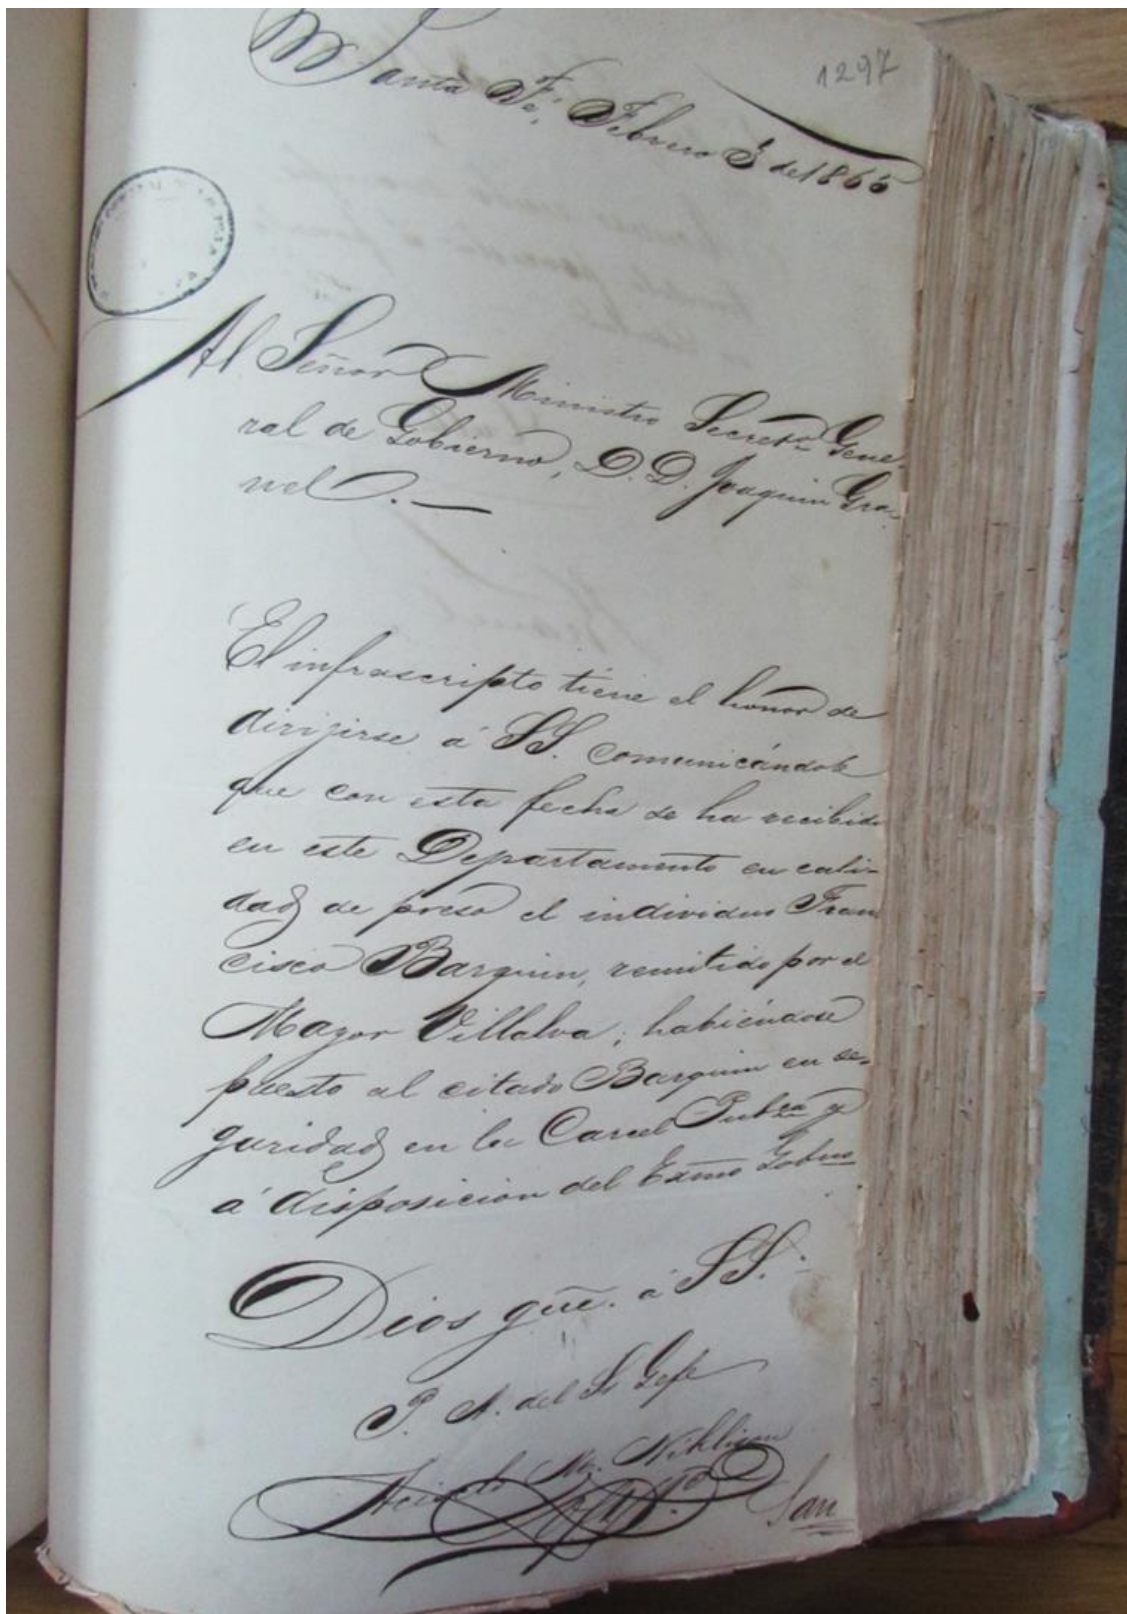 1297
Santa Fé, Febrero 3 de 1865
Al Señor Ministro Secreto Gene-
ral de Gobierno, D.D. Joaquin Gra-
nel.—
El infrascripto tiene el honor de
dirijirse á SS. comunicándole
que con esta fecha se ha recibido
en este Departamento en cali-
dad de preso el individuo Fran
cisco Barquin, remitido por el
Mayor Villalva; habiéndose
puesto al citado Barquin en se-
guridad en la Carcel Pubca y
á disposicion del Exmo Gobno
Dios gūe. á SS.
P. A. del Sr Gefe
M. Niklison
San